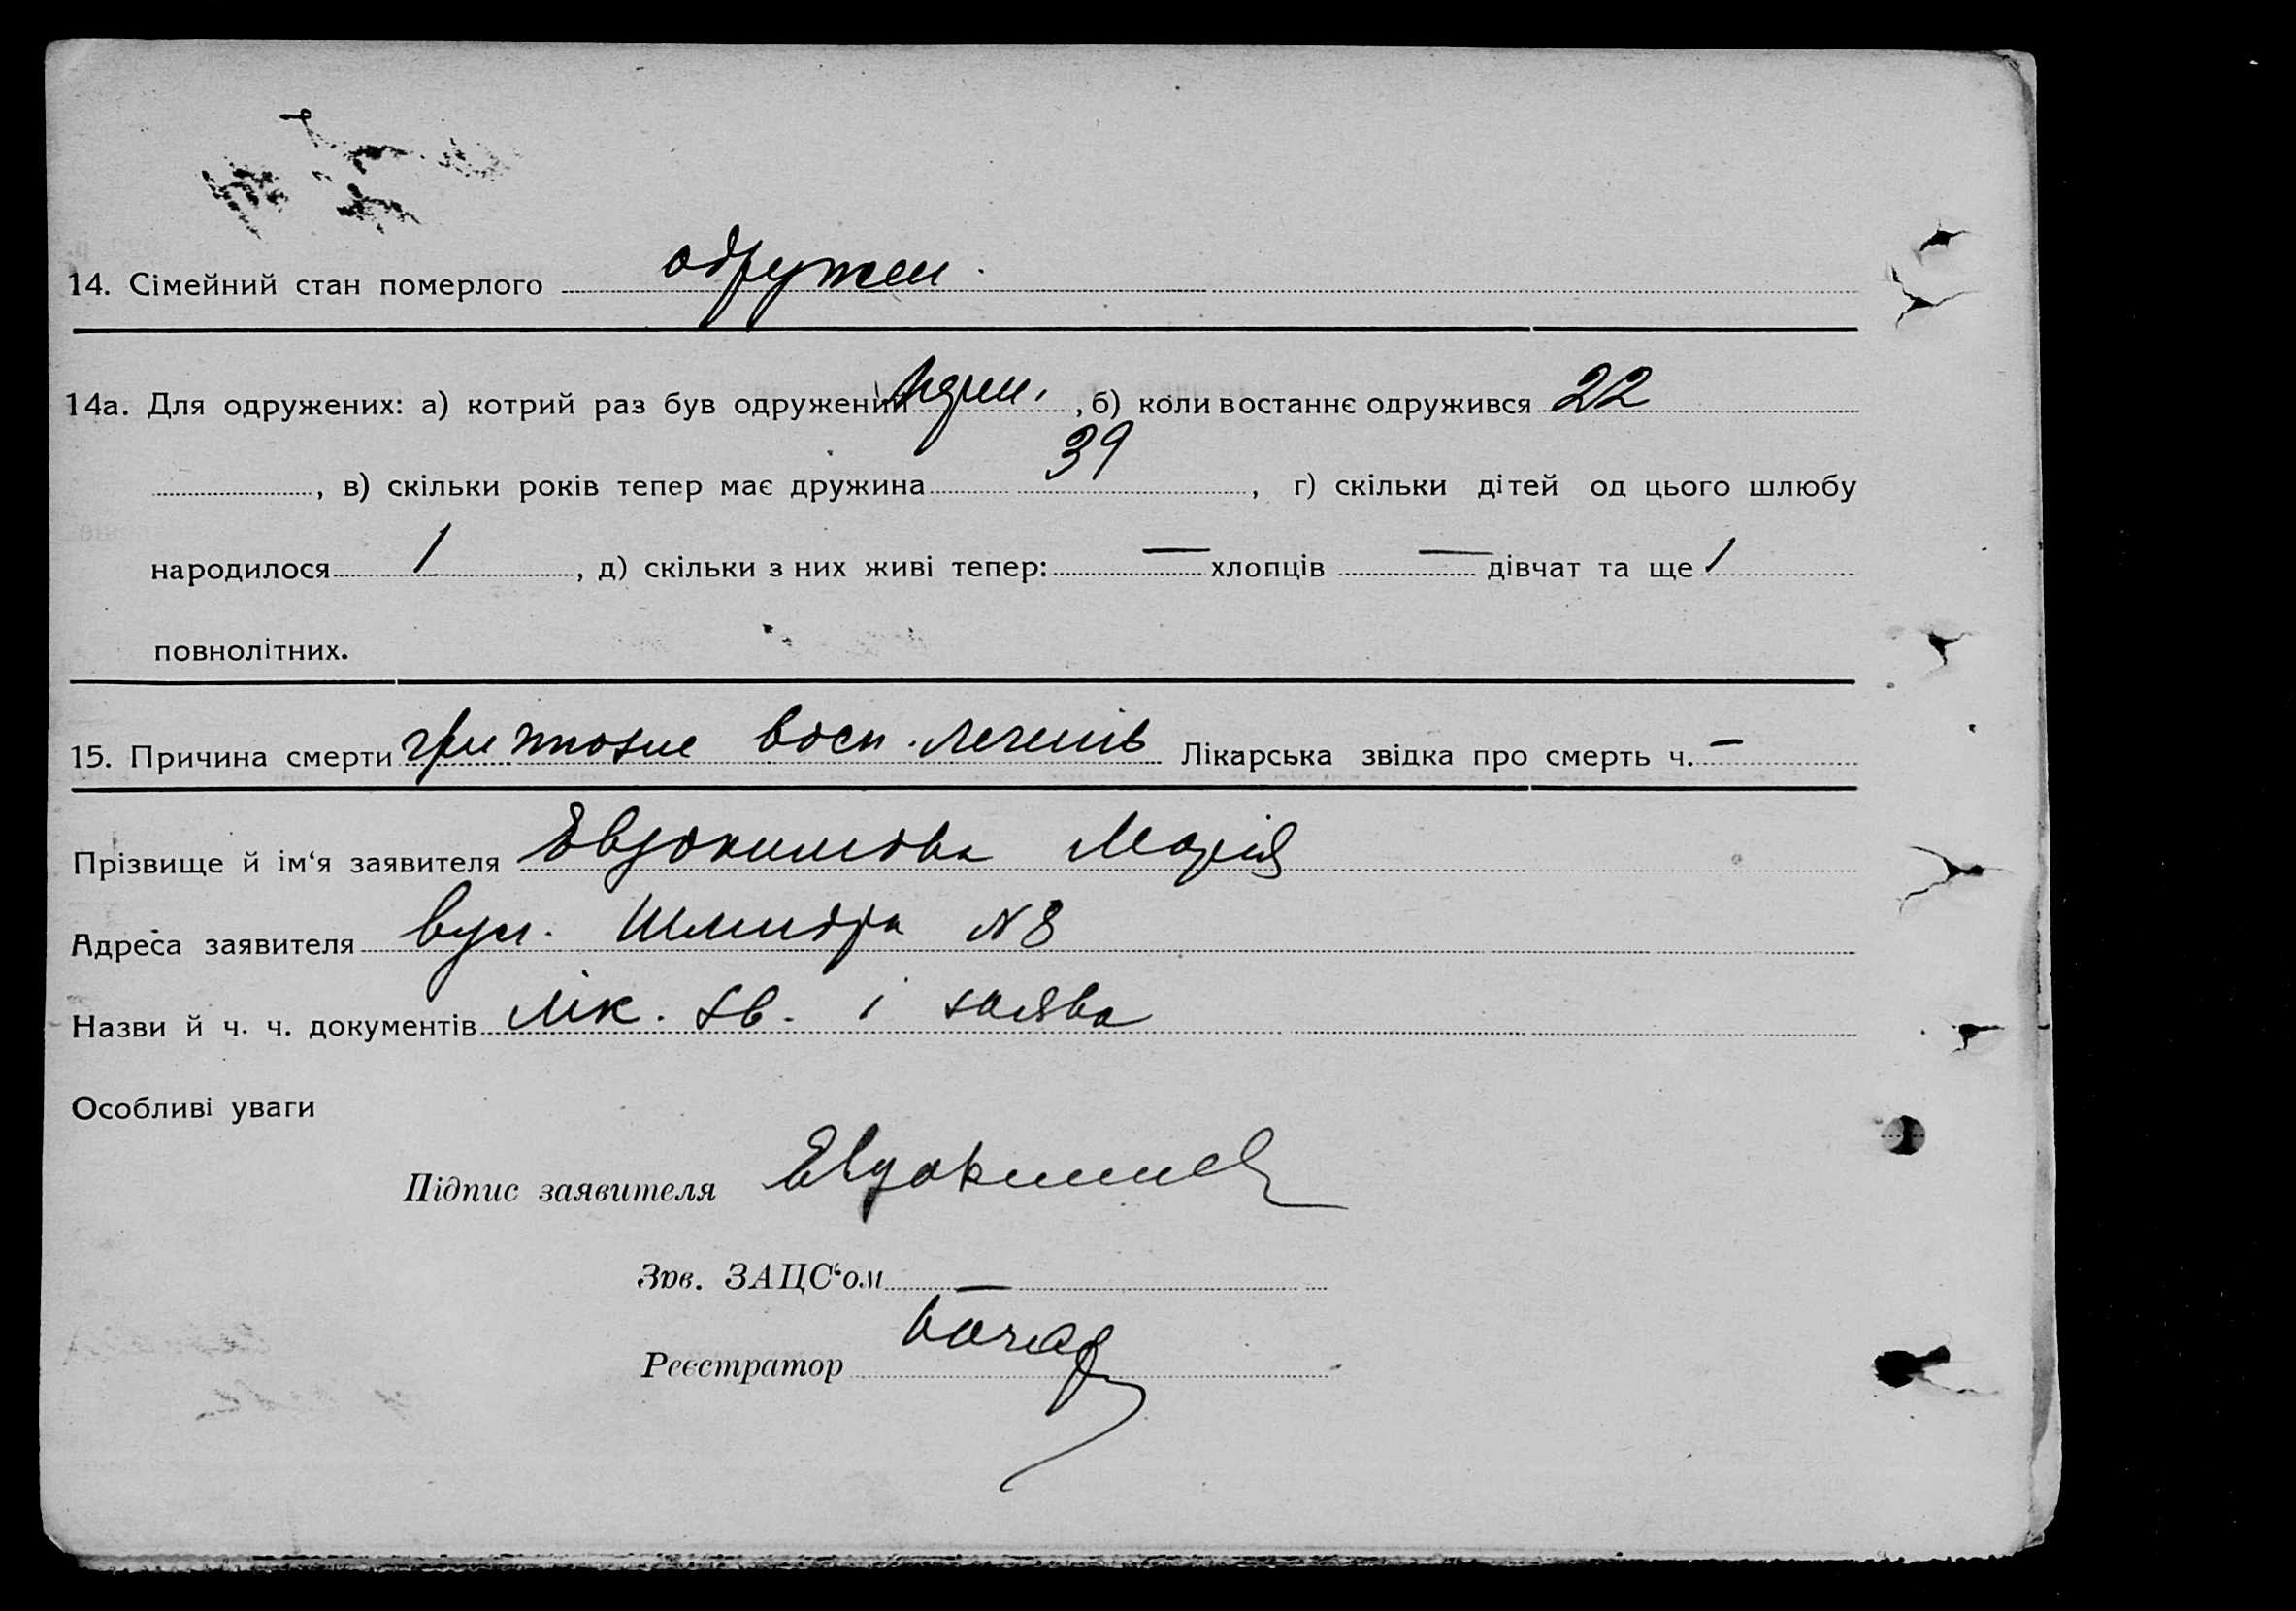 14. Сімейний стан померлого одружен.
14а. Для одружених: а) котрий раз був одружений перш., б) коли востаннє одружився 22
, в) скільки років тепер має дружина 39, г) скільки дітей од цього шлюбу
народилося 1, д) скільки з них живі тепер: — хлопців — дівчат та ще 1
повнолітних.
15. Причина смерти грипозне восп. легенів Лікарська звідка про смерть ч. —
Прізвище й ім‘я заявителя Евдокимова Марія
Адреса заявителя вул. Шмидта N 8
Назви й ч. ч. документів лік. зв. і заява
Особливі уваги
Підпис заявителя Евдокимов
Зав. ЗАЦС‘ом —
Реєстратор